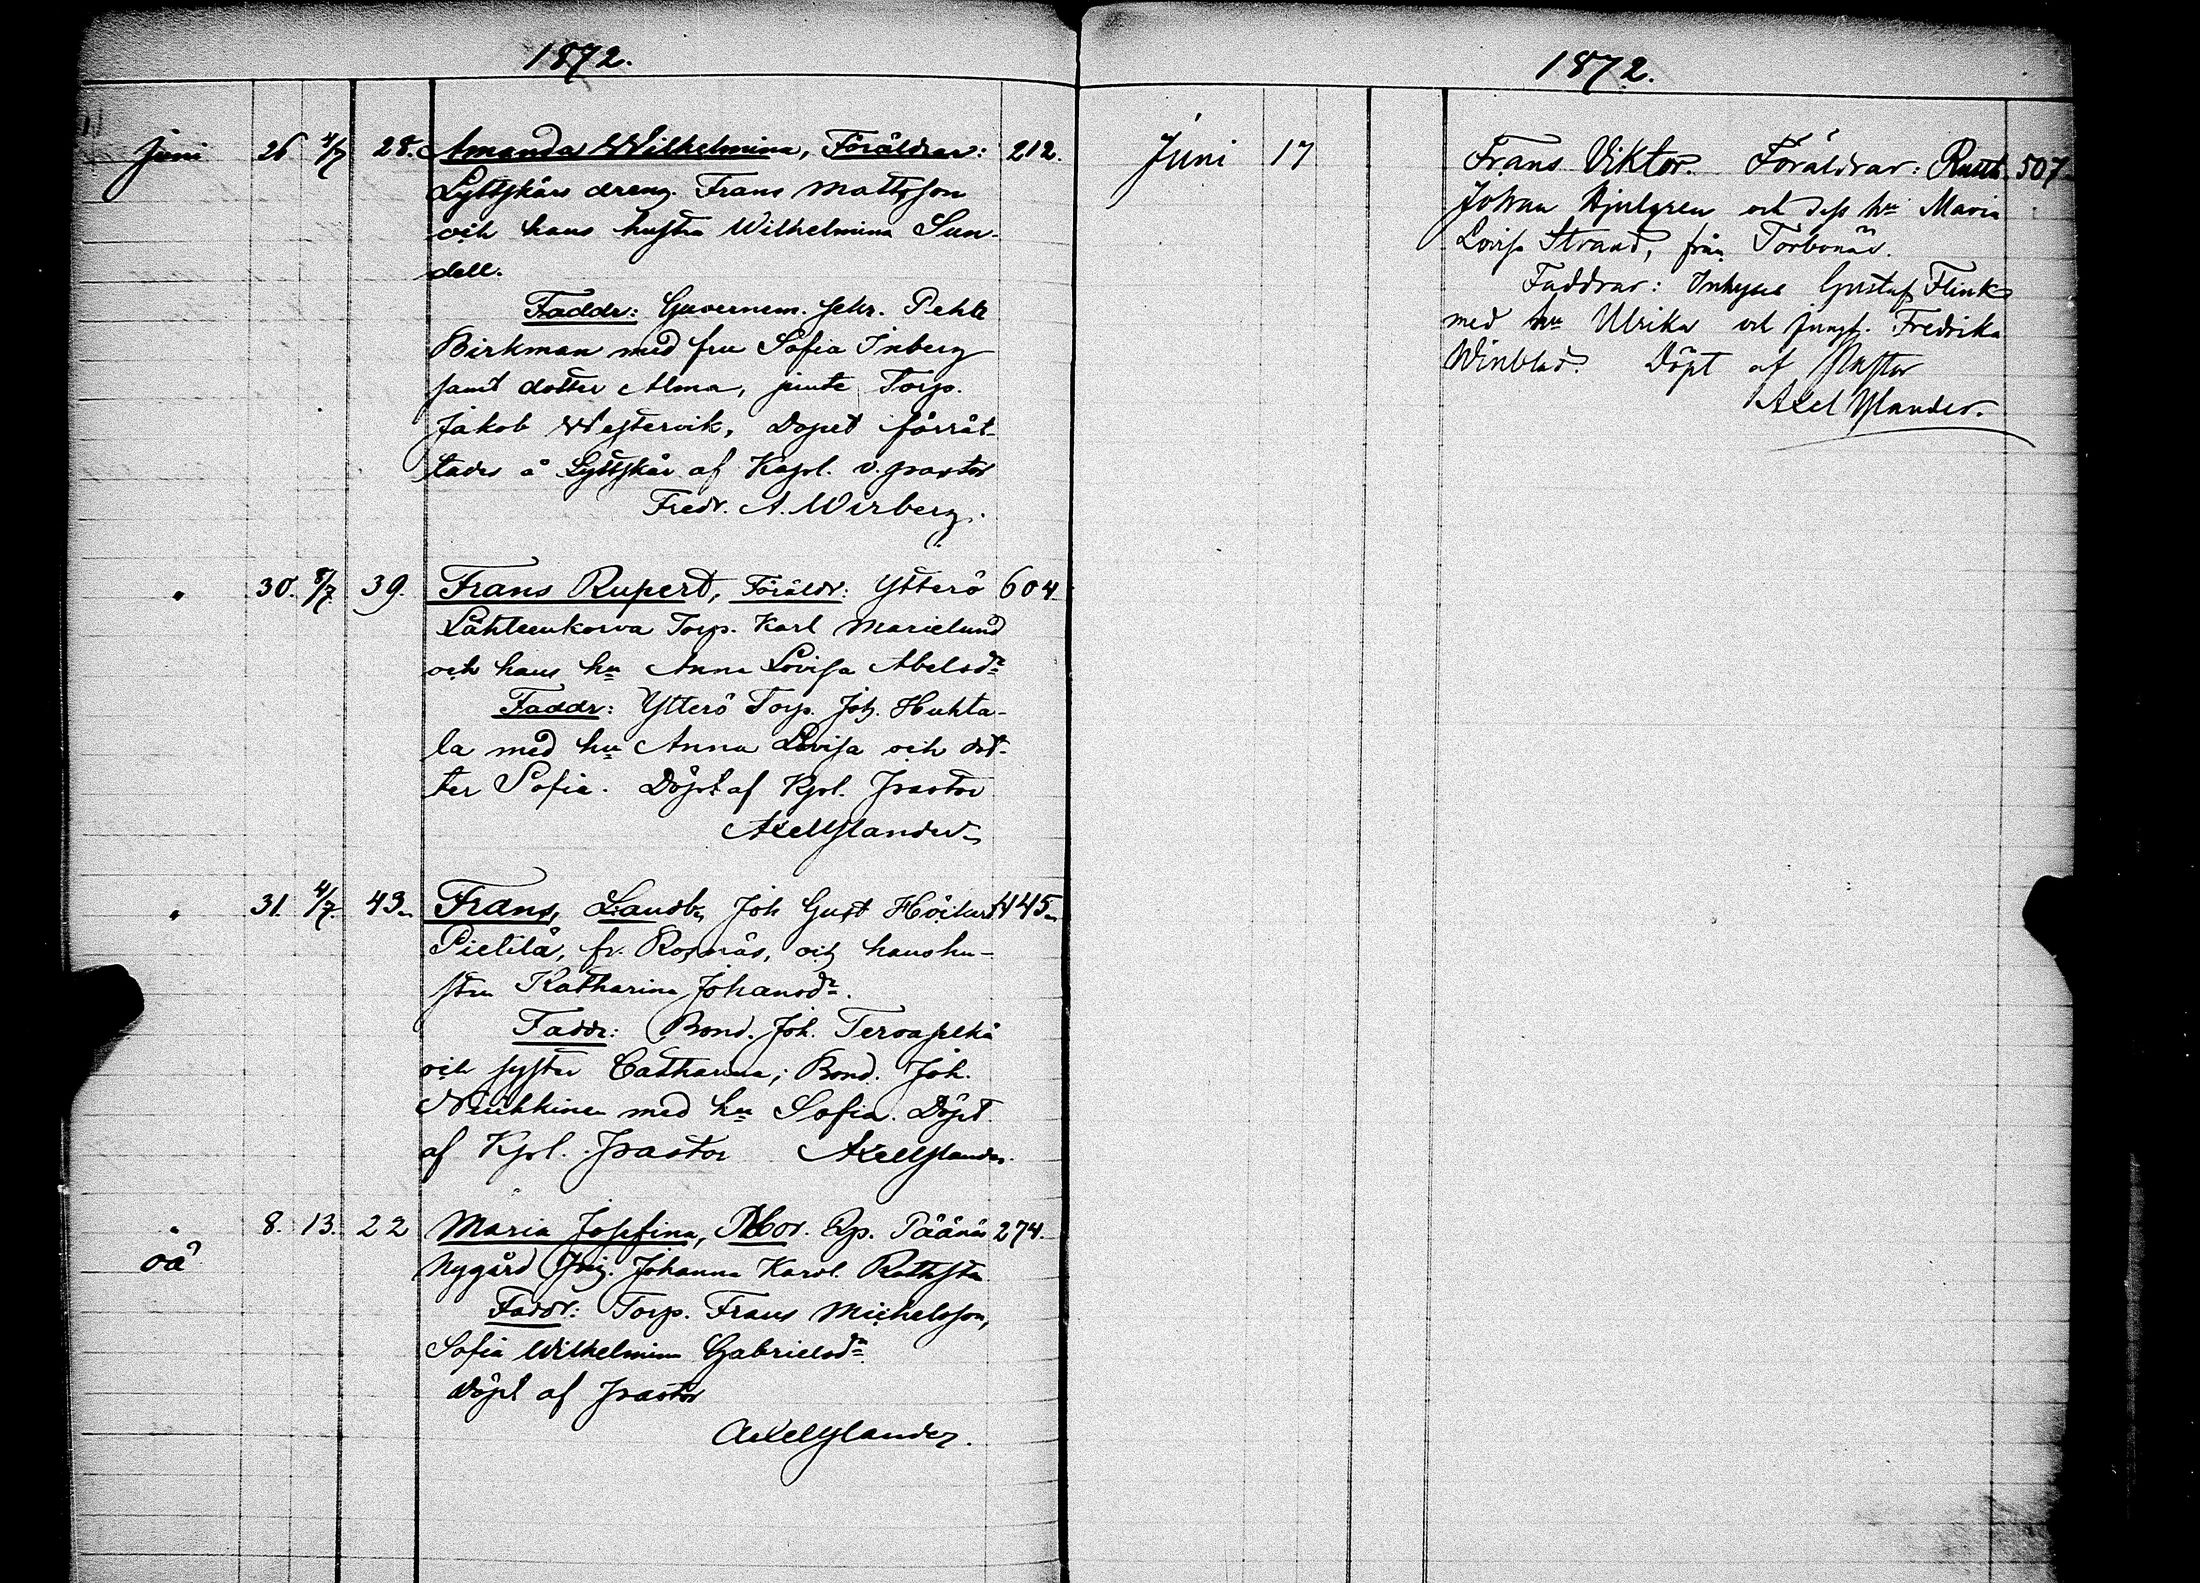 1872.
Juni 26 4/7 28. Amanda Wilhelmina, Föräldrar: 212.
Lyttskärs dreng. Frans Mattsson
och hans hustru Wilhelmina Sun-
dell.
Faddr: Guvernem. sekr. Pehr
Birkman med fru Sofia Inberg
samt dotter Alma, jemte Torp.
Jakob Westervik, Dopet förrät-
tades å Lyttskär af Kapl. v. pastor
Fredr. A. Wirberg.
" 30. 8/7. 39. Frans Rupert, Föräldr: Ytterö 604.
Lähteenkorva Torp. Karl Marielund
och hans hu Anna Lovisa Abelsdr
Faddr: Ytterö Torp. Joh. Huhta-
la med hu Anna Lovisa och dot-
ter Sofia. Döpt af Kpl. Pastor
Axel Ylander
" 31. 4/7. 43. Frans, Landb. Joh Gust 445.
Pietilä, fr. Rosnäs, och hans hu-
stru Katharina Johansdr.
Faddr: Bond. Joh. Tervapelkä
och syster Catharina; Bond. Joh.
med hu Sofia. Döpt.
af Kpl. Pastor Axel Ylander.
" 8. 13. 22 Maria Josefina, Mor. Påånäs 274.
oä
Nygård Pig. Johanna Karol.
Faddr: Torp. Frans Michelsson,
Sofia Wilhelmina Gabrielsdr
Döpt af Pastor
Axel Ylander.
1872.
Juni 17 Frans Viktor. Föräldrar: 507
Johan Hjulgren och dess hu Maria
Lovisa Strand, från Torbonäs.
Faddrar: Inhyses Gustaf Flink
med hu Ulrika och jungf. Fredrika
Winblad. Döpt af Pastor
Axel Ylander.